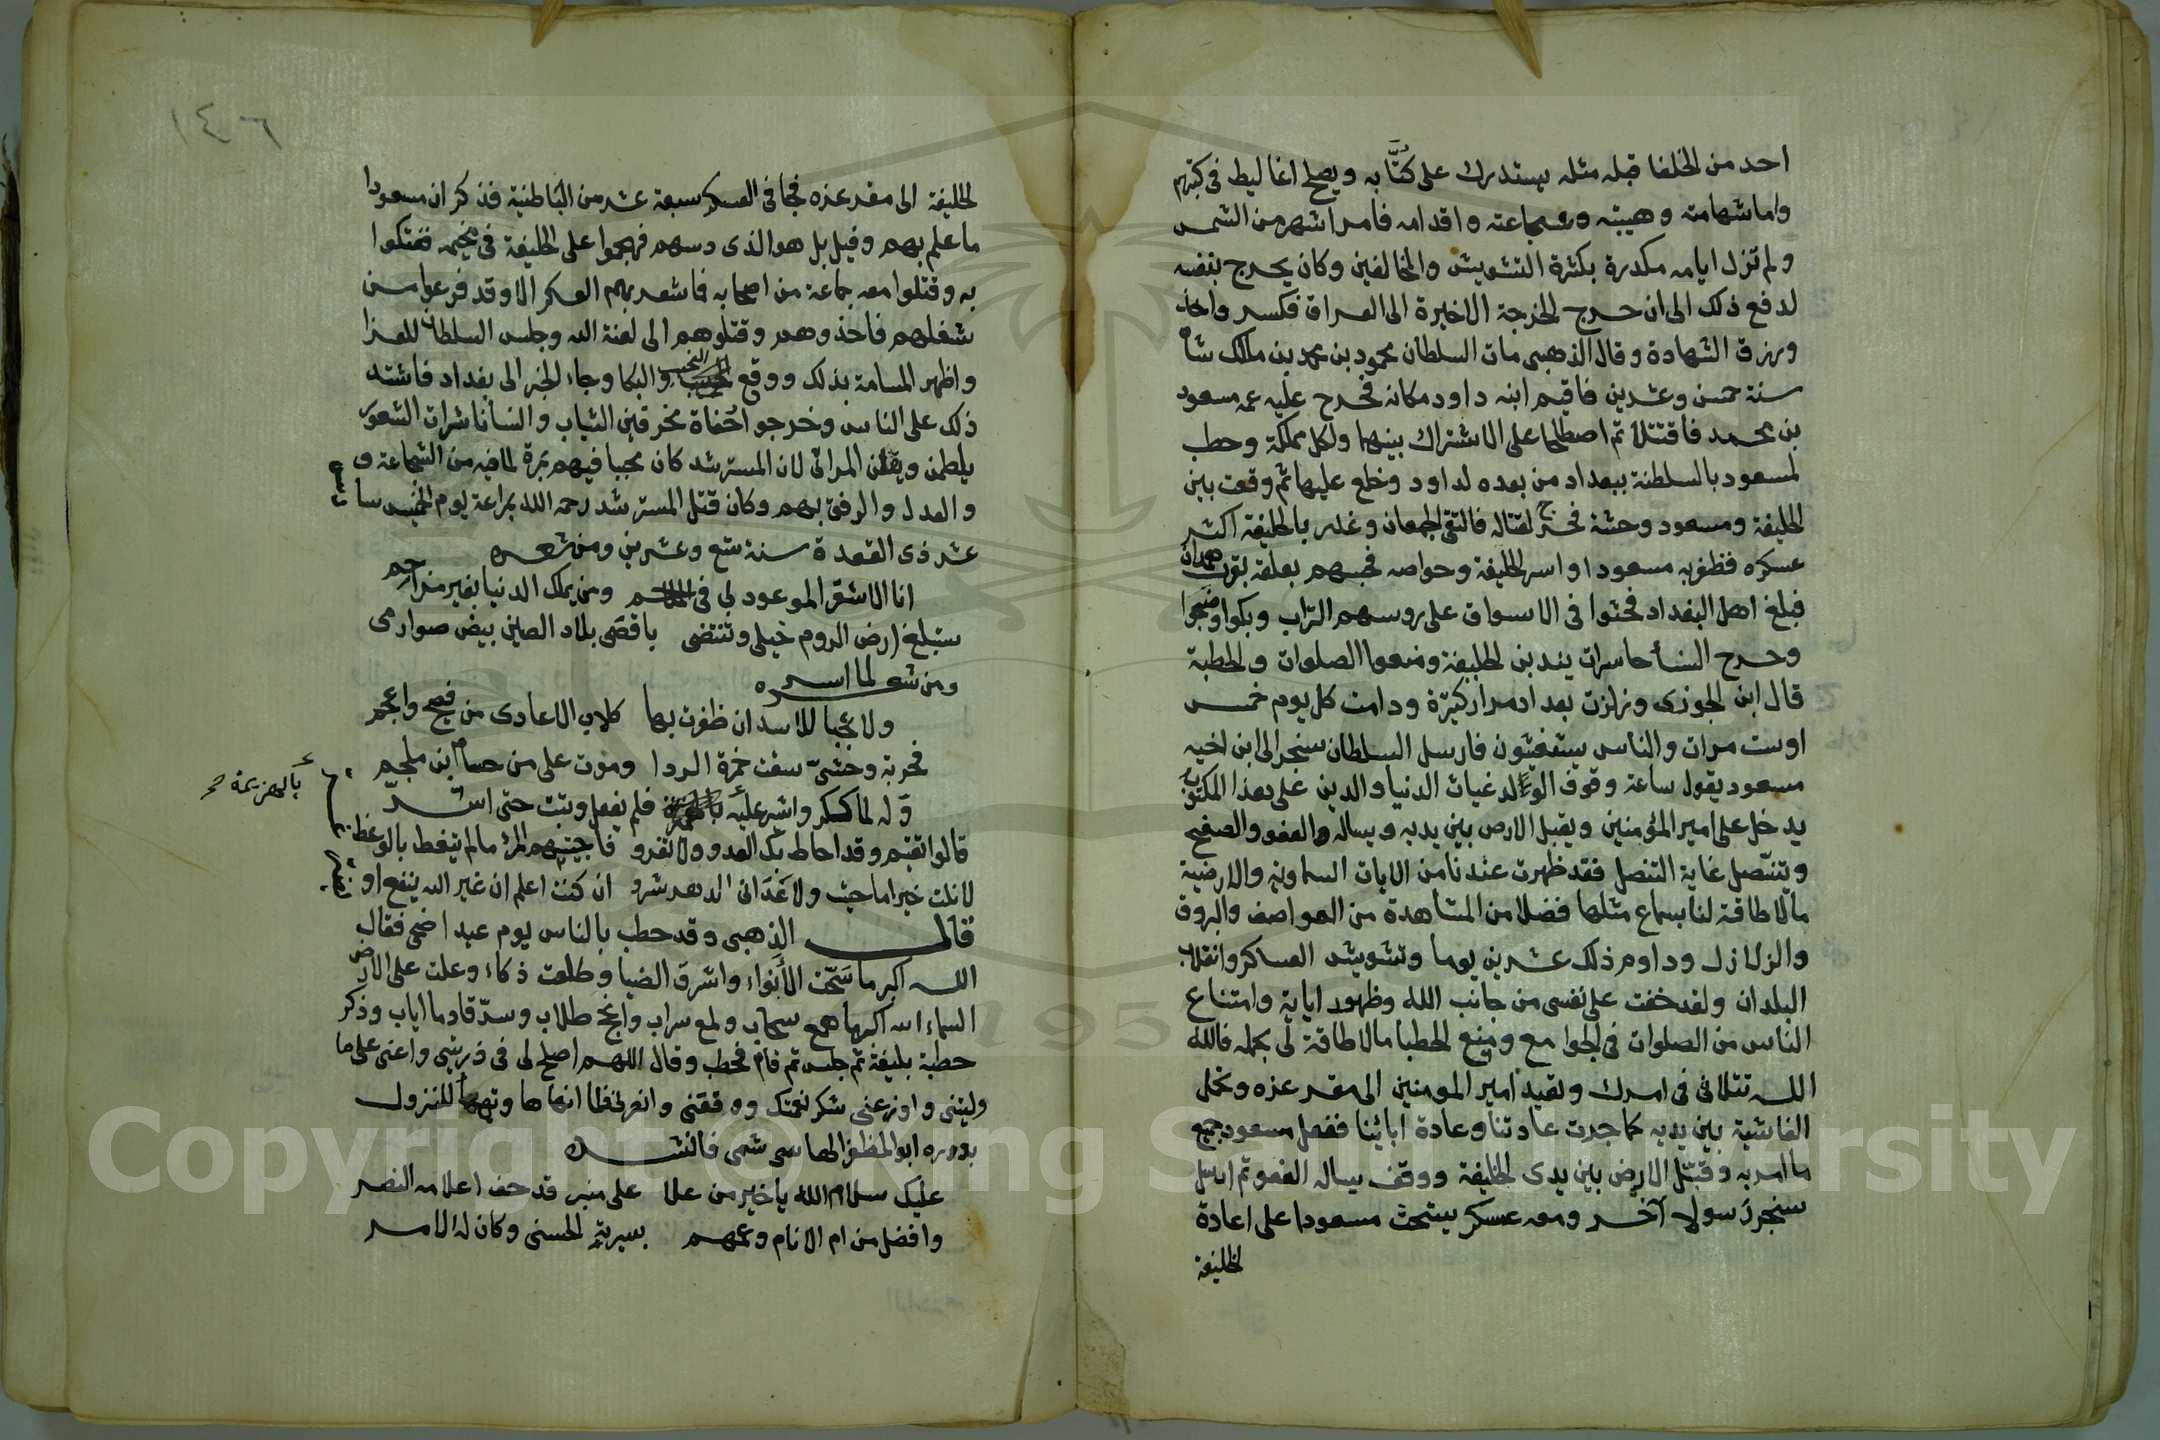 احد من الخلفا قبله مثله يستدرك على كُتَّابه ويصلح اغاليط فى كتبهم
واما شهامته وهيبته وشجاعته واقدامه فامر اشهر من الشمس
ولم تزل ايامه مكدرة بكثرة التشويش والمخالفين وكان يخرج بنفسه
لدفع ذلك الى ان خرج الخرجة الاخيرة الى العراق فكسر واخذ
ورزق الشهادة وقال الذهبى مات السلطان محمود بن محمد بن ملك شاه
سنة خمس وعشرين فاقيم ابنه داود مكانه فخرج عليه عمه مسعود
بن محمد فاقتتلا ثم اصطلحا على الاشتراك بينهما ولكل مملكة وخطب
لمسعود بالسلطنة ببغداد من بعده لداود وخلع عليهما ثم وقعت بين
الخليفة ومسعود وحشة فخرج لقتاله فالتقى الجمعان وغدر بالخليفة اكثر
عسكره فظفر به مسعود واسر الخليفة وخواصه فحبسهم بقلعة بقرب همدان
فبلغ اهل البغداد فحثوا فى الاسواق على روسهم التراب وبكوا وضجوا
وخرج النسأ حاسرات يندبن الخليفة ومنعوا الصلوات والخطبة
قال ابن الجوزى وزلزت بغداد مرارا كثيرة ودامت كل يوم خمس
اوست مرات والناس يستغيثون فارسل السلطان سنجر الى ابن اخيه
مسعود يقول ساعة وقوف الولد غياث الدنيا والدين على هذا المكتوب
يدخل على امير المؤمنين ويقبل الارض بين يديه ويساله العفو والصفح
وتتنصل غاية التنصل فقد ظهرت عندنا من الايات السماوية والارضية
مالا طاقة لنا بسماع مثلها فضلا من المشاهدة من العواصف والبروق
والزلازل وداوم ذلك عشرين يوما وتشويش العساكر وانقلاب
البلدان ولقد خفت على نفسى من جانب الله وظهور اياته وامتناع
الناس من الصلوات فى الجوامع ومنع الخطبا مالا طاقة لى بحمله فالله
الله تتلافى فى امرك وتعيد امير المومنين الى مقر عزه وتحمل
الغاشية بين يديه كما جرت عادتنا وعادة ابائنا ففعل مسعود جميع
ما امر به وقبّل الارض بين يدى الخليفة ووقف يساله العفو ثم ارسل
سنجر رسولا آخر ومعه عسكر يستحث مسعودا على اعادة
الخليفة
١٤٦
الخليفة الى مقر عزه فجا فى العسكر سبعة عشر من الباطنية فذكر ان مسعودا
ما علم بهم وقيل بل هو الذى دسهم فهجموا على الخليفة فى مخيمه ففتكوا
به وقتلوا معه جماعة من اصحابه فما شعر بهم العسكر الا وقد فرغوا من
شغلهم فاخذوهم وقتلوهم الى لعنة الله وجلس السلطان للعزا
واظهر المسامة بذلك ووقع النحيب والبكا وجاء الخبر الى بغداد فاشتد
ذلك على الناس وخرجوا حُفاة مخرقين الثياب والنسأ ناشرات الشعور
يلطمن ويقلن المراثى لان المسترشد كان محببا فيهم بمرة لما فيه من الشجاعة و
والعدل والرفق بهم وكان قتل المسترشد رحمه الله بمراغة يوم الخميس سا
عشر ذى القعدة سنة تسع وعشرين ومن شعره
انا الاشقر الموعود لى فى الملاحم ومن يملك الدنيا بغير مزاحم
ستبلغ ارض الروم خيلى وتنتضى باقصى بلاد الصين بيض صوارمى
ومن شعره لما اسر
ولا عجبا للاسد ان ظفرت بها كلاب الاعادى من فصيح واعجم
فحربة وحشىّ سقت حمزة الردا وموت على من حسام ابن ملجم
وله لما كسكر واشير عليه فلم يفعل وثبت حتى اسر
بالهزيمة صح
قالوا تقيم وقد احاط بك العدو ولا تفر فاجبتهم المرء مالم يتعظ بالوعظ
لا نلت خيرا ما حييت ولا عَدَانى الدهر شر ان كنت اعلم ان غير الله ينفع او
قال الذهبى وقد خطب بالناس يوم عيد اضحى فقال
الله اكبر ما سَحّت الأنواء واشرق الضيا وطلعت ذكاء وعلت على الارض
السماء الله اكبر ما همع سحاب ولمع سراب وانجح طلاب وسرّ قادما اياب وذكر
خطبة بليغة ثم جلس ثم قام فخطب وقال اللهم اصلح لى فى ذريتى واعنى على ما
وليتنى واوزعنى شكر نعمتك ووفقنى وانصرنى فلما انهاها وتهيأ للنزول
بدره ابو المظفر الهاشمى فانشده
عليك سلام الله ياخير من علا على منبر قد حف اعلامه النصر
وافضل من ام الانام وعمهم بسيرته الحسنى وكان له الامر